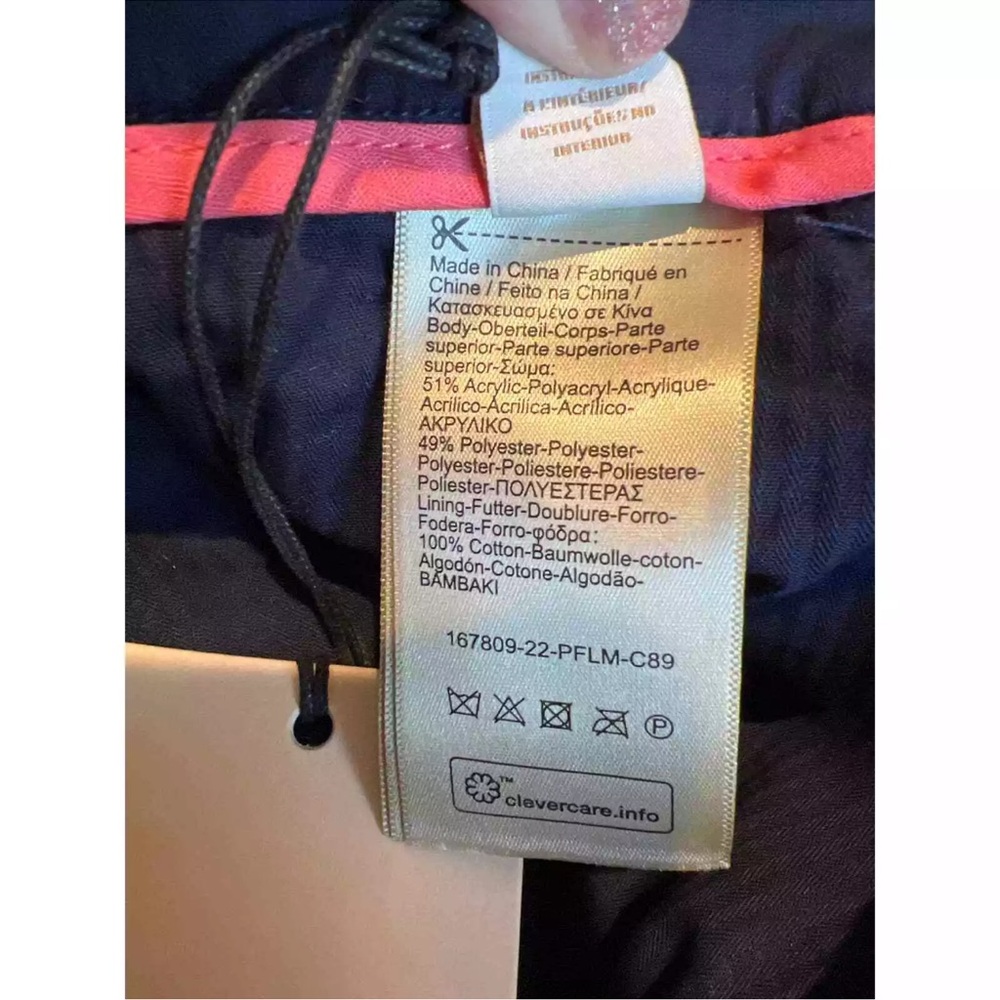 A L'INTÉRIEUR/
INSTRUÇÕES NO
INTERIOR
Made in China / Fabriqué en
Chine / Feito na China /
Κατασκευασμένο σε Κίνα
Body-Oberteil-Corps-Parte
superior-Parte superiore-Parte
superior-Σώμα:
51% Acrylic-Polyacryl-Acrylique-
Acrilico-Acrílica-Acrílico-
ΑΚΡΥΛΙΚΟ
49% Polyester-Polyester-
Polyester-Poliestere-Poliestere-
Poliester-ΠΟΛΥΕΣΤΕΡΑΣ
Lining-Futter-Doublure-Forro-
Fodera-Forro-φόδρα:
100% Cotton-Baumwolle-coton-
Algodón-Cotone-Algodão-
ΒΑΜΒΑΚΙ
167809-22-PFLM-C89
P
™
clevercare.info